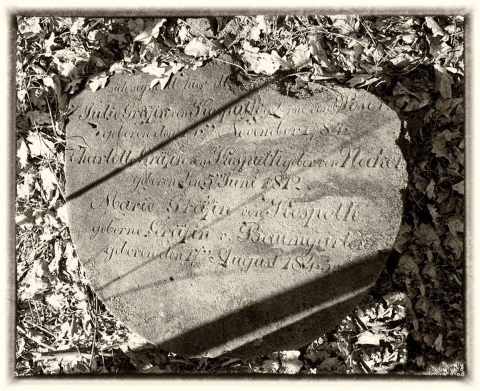 Julie Gräfin von Kospoth geborne von
geboren den November 1784
Charlotte Gräfin von Kospoth geborne von Necker
geboren den 5ten Juni 1812
Marie Gräfin von Kospoth
geborne Gräfin v. Baumgarten
geboren den 17ten August 1843